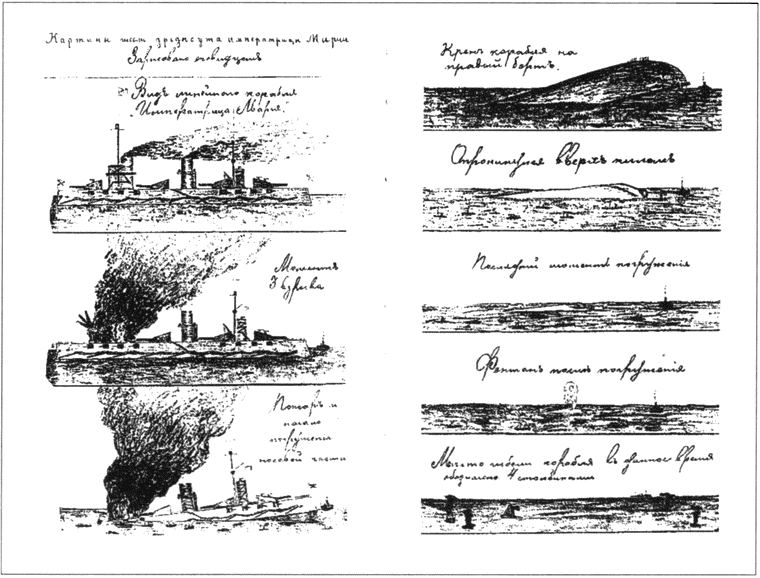 Картины дредноута императрица Мария
Зарисовано очевидцемъ
Видъ линейнаго корабля
"Императрица Марія".
Моментъ
взрыва
Пожаръ и
начало
погруженія
носовой части
Кренъ корабля на
правый бортъ.
Опрокинулся вверхъ килемъ
Последній моментъ погруженія
Фонтанъ после погруженія
Место гибели корабля въ данное время
обозначено 4 столбиками